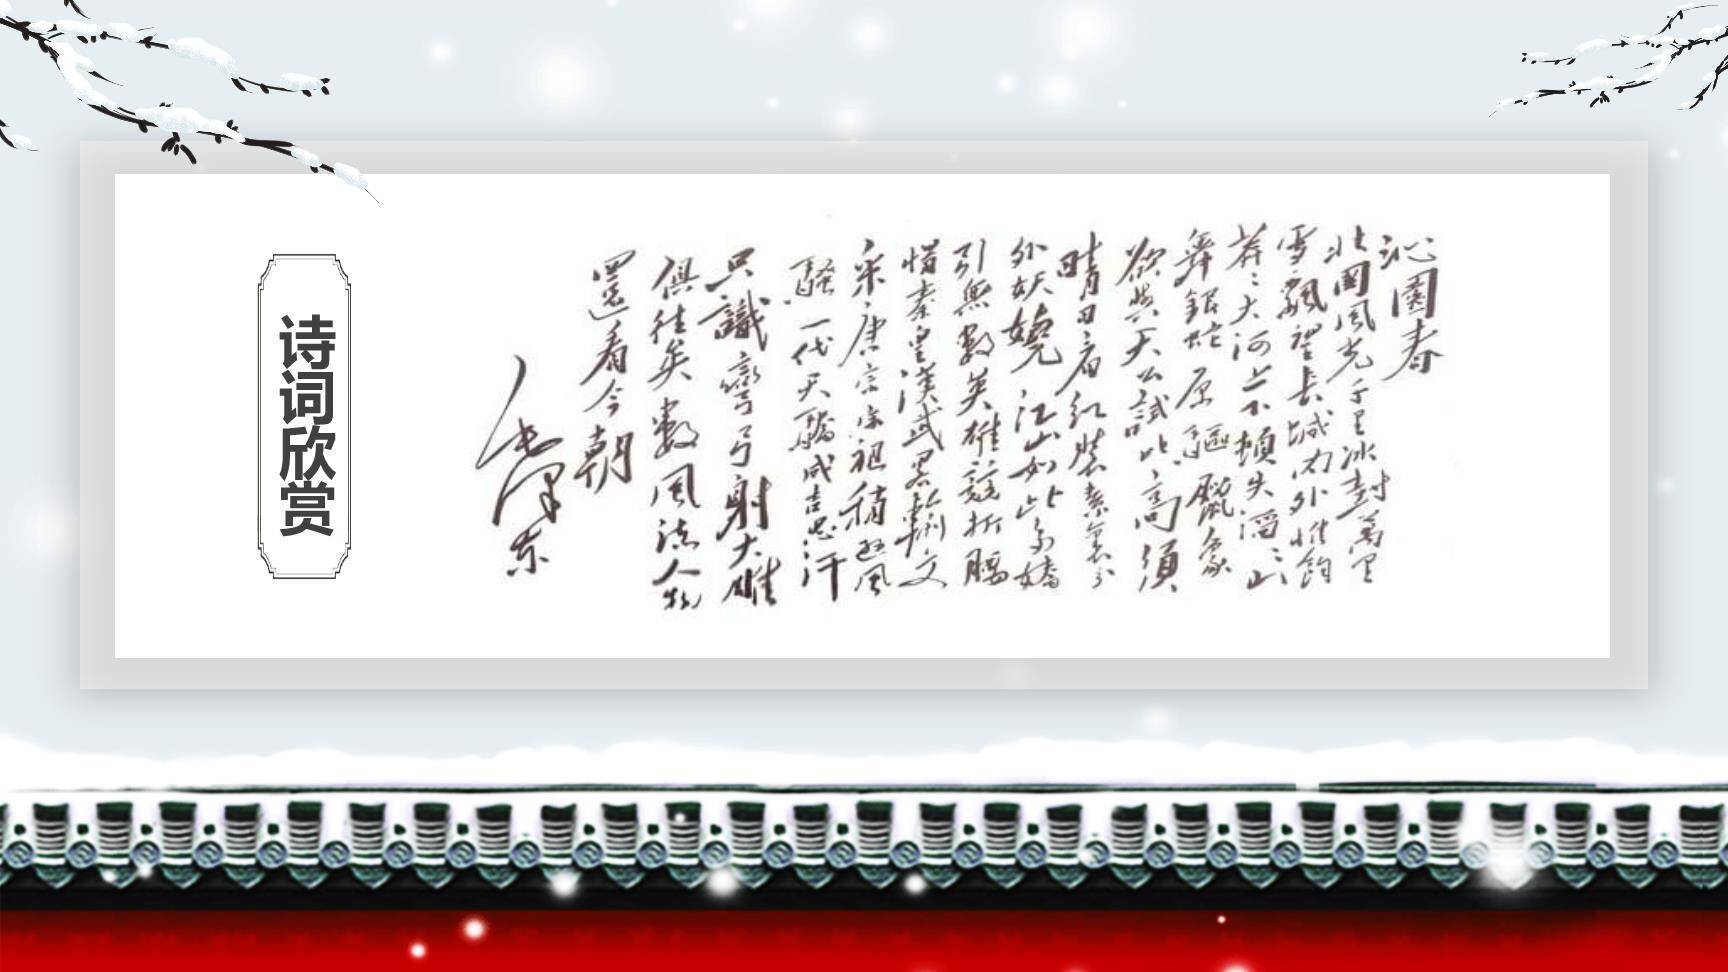 诗词欣赏
沁園春
北國風光千里冰封萬里
雪飄望長城內外惟餘
莽々大河上下頓失滔々山
舞銀蛇原驅臘象
欲與天公試比高須
晴日看紅裝素裹分
外妖嬈江山如此多嬌
引無數英雄競折腰
惜秦皇漢武畧輸文
采唐宗宋祖稍遜風
騷一代天驕成吉思汗
只識彎弓射大雕
俱往矣數風流人物
還看今朝
毛澤東